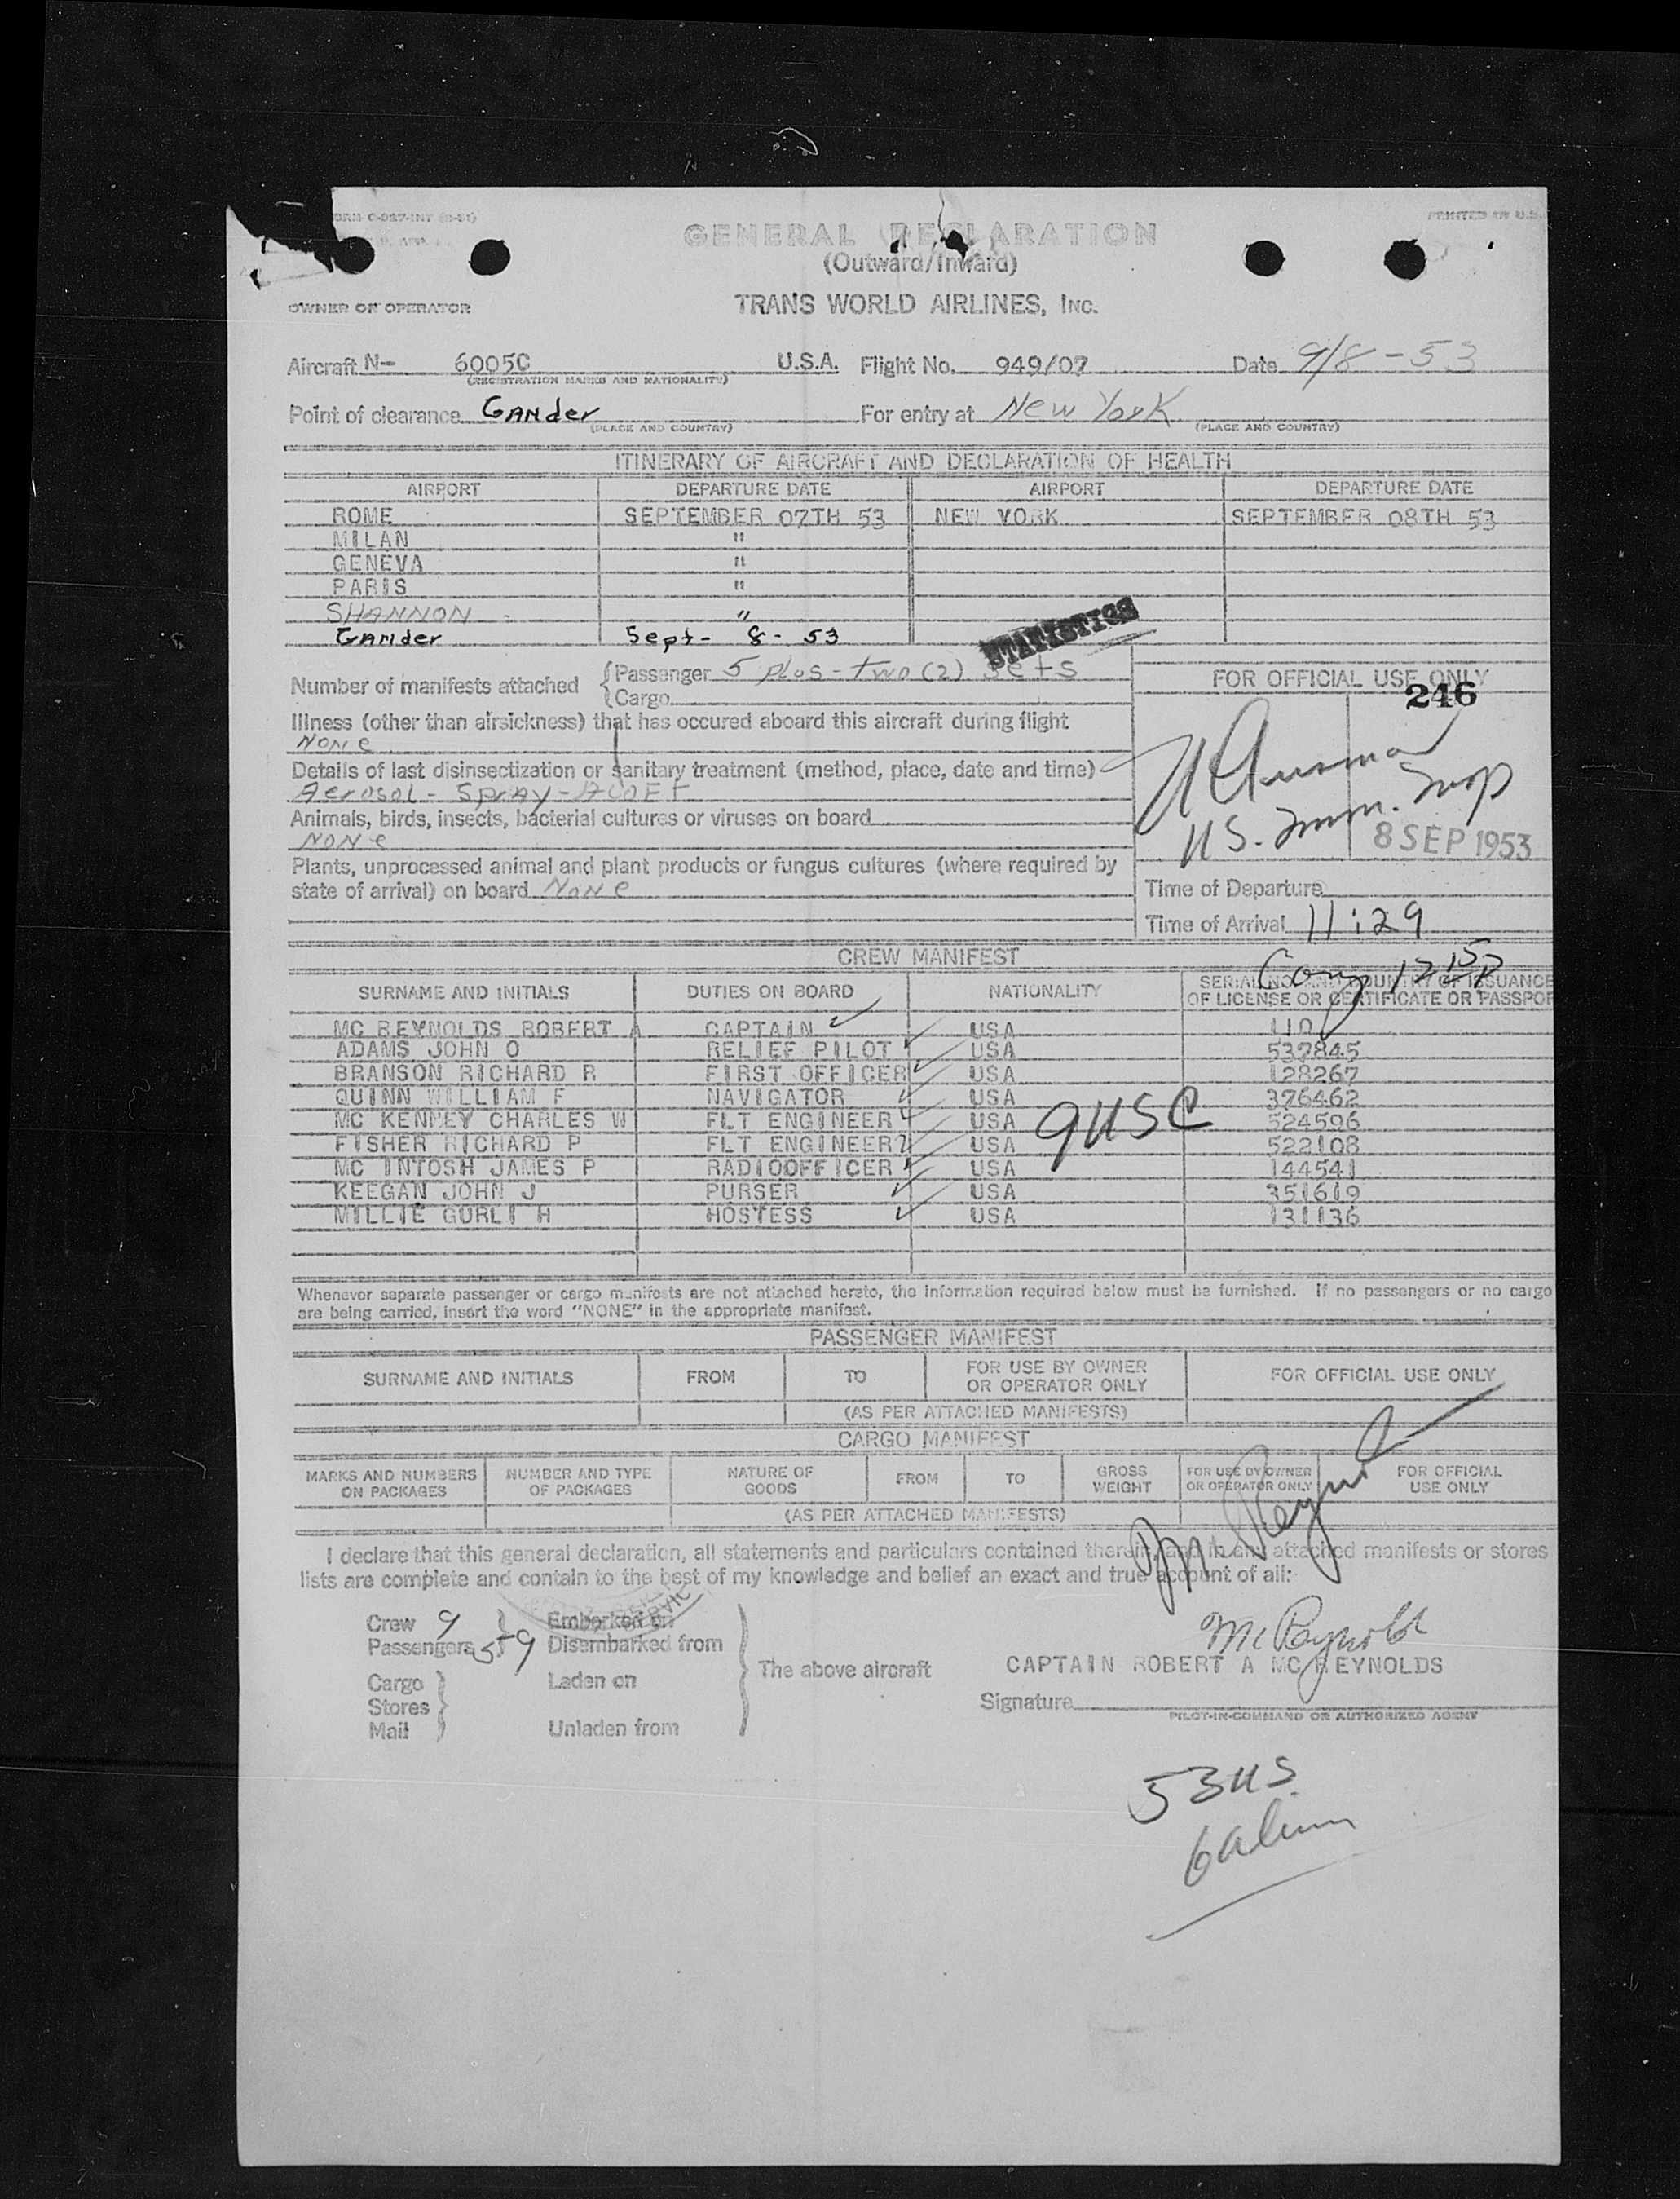 GENERAL DECLARATION
(Outward/Inward)
PRINTED IN U.S.
OWNER OR OPERATOR
TRANS WORLD AIRLINES, INC.
Aircraft N- 6005C U.S.A. Flight No. 949/07 Date 9/8-53
(REGISTRATION MARKS AND NATIONALITY)
Point of clearance Gander For entry at New York
(PLACE AND COUNTRY) (PLACE AND COUNTRY)
ITINERARY OF AIRCRAFT AND DECLARATION OF HEALTH
AIRPORT DEPARTURE DATE AIRPORT DEPARTURE DATE
ROME SEPTEMBER 07TH 53 NEW YORK SEPTEMBER 08TH 53
MILAN "
GENEVA "
PARIS "
SHANNON "
Gander Sept- 8- 53
STATISTICS
Number of manifests attached {Passenger 5 plus-two (2) sets
{Cargo
FOR OFFICIAL USE ONLY
246
Illness (other than airsickness) that has occured aboard this aircraft during flight
None
Details of last disinsectization or sanitary treatment (method, place, date and time)
Aerosol- Spray-Aloft
Animals, birds, insects, bacterial cultures or viruses on board
None
U.S. Imm. Insp
8 SEP 1953
Plants, unprocessed animal and plant products or fungus cultures (where required by
state of arrival) on board None
Time of Departure
Time of Arrival 11:29
CREW MANIFEST
SURNAME AND INITIALS DUTIES ON BOARD NATIONALITY SERIAL NO. AND COUNTRY OF ISSUANCE
OF LICENSE OR CERTIFICATE OR PASSPOR
MC REYNOLDS ROBERT A CAPTAIN USA 110
ADAMS JOHN O RELIEF PILOT USA 537845
BRANSON RICHARD R FIRST OFFICER USA 128267
QUINN WILLIAM F NAVIGATOR USA 376462
MC KENNEY CHARLES W FLT ENGINEER USA 524596
9USC
FISHER RICHARD P FLT ENGINEER USA 522108
MC INTOSH JAMES P RADIOOFFICER USA 144541
KEEGAN JOHN J PURSER USA 351619
MILLIE GURLI H HOSTESS USA 131136
Whenever separate passenger or cargo manifests are not attached hereto, the information required below must be furnished. If no passengers or no cargo
are being carried, insert the word "NONE" in the appropriate manifest.
PASSENGER MANIFEST
SURNAME AND INITIALS FROM TO FOR USE BY OWNER OR OPERATOR ONLY FOR OFFICIAL USE ONLY
(AS PER ATTACHED MANIFESTS)
CARGO MANIFEST
MARKS AND NUMBERS ON PACKAGES NUMBER AND TYPE OF PACKAGES NATURE OF GOODS FROM TO GROSS WEIGHT FOR USE BY OWNER OR OPERATOR ONLY FOR OFFICIAL USE ONLY
(AS PER ATTACHED MANIFESTS)
I declare that this general declaration, all statements and particulars contained therein, and in any attached manifests or stores
lists are complete and contain to the best of my knowledge and belief an exact and true account of all:
Crew 9 Embarked on
Passengers 59 Disembarked from
McReynolds
The above aircraft
CAPTAIN ROBERT A MC REYNOLDS
Cargo Laden on
Stores
Signature
PILOT-IN-COMMAND OR AUTHORIZED AGENT
Mail Unladen from
53 US
6 alien